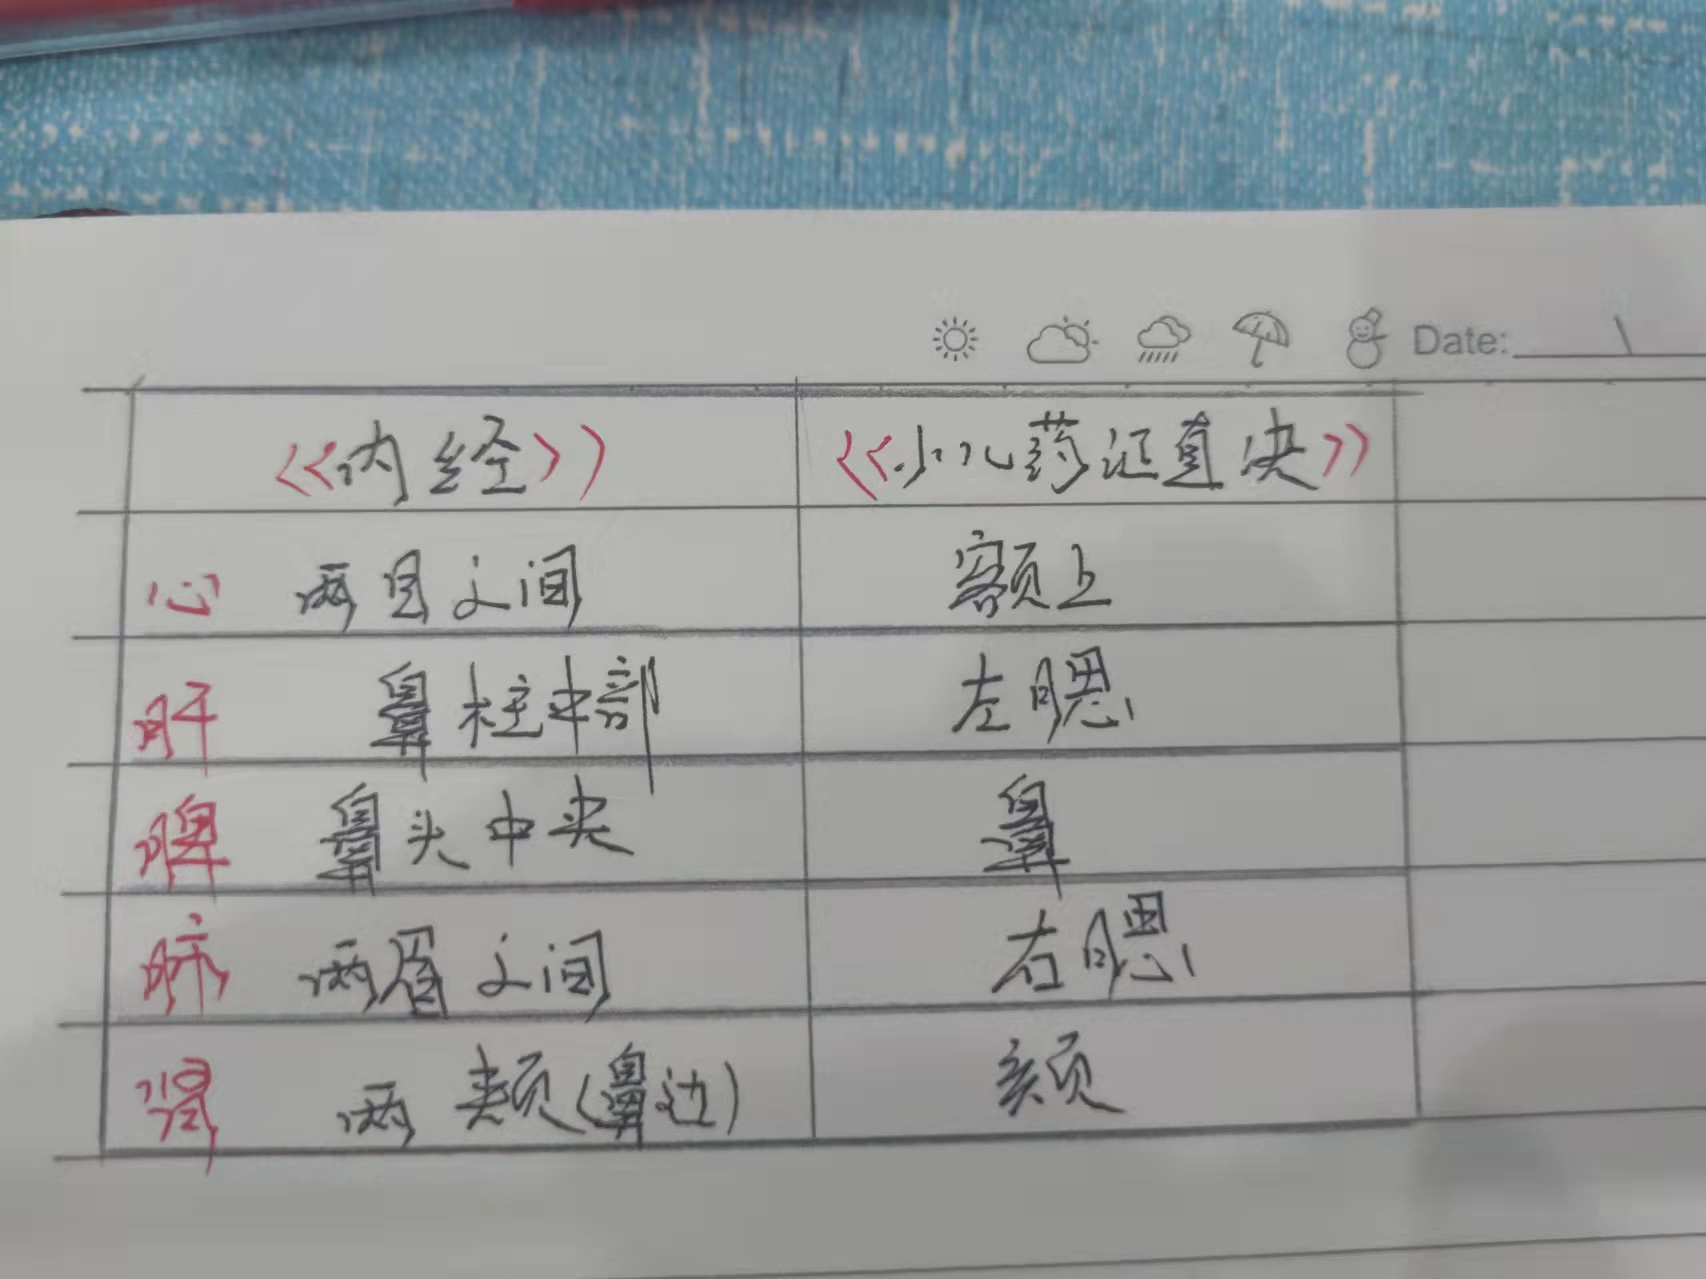 Date:
《内经》 《小儿药证直决》
心 两目之间 额上
肝 鼻柱中部 左腮
脾 鼻头中央 鼻
肺 两眉之间 右腮
肾 两颊(鼻边) 颏